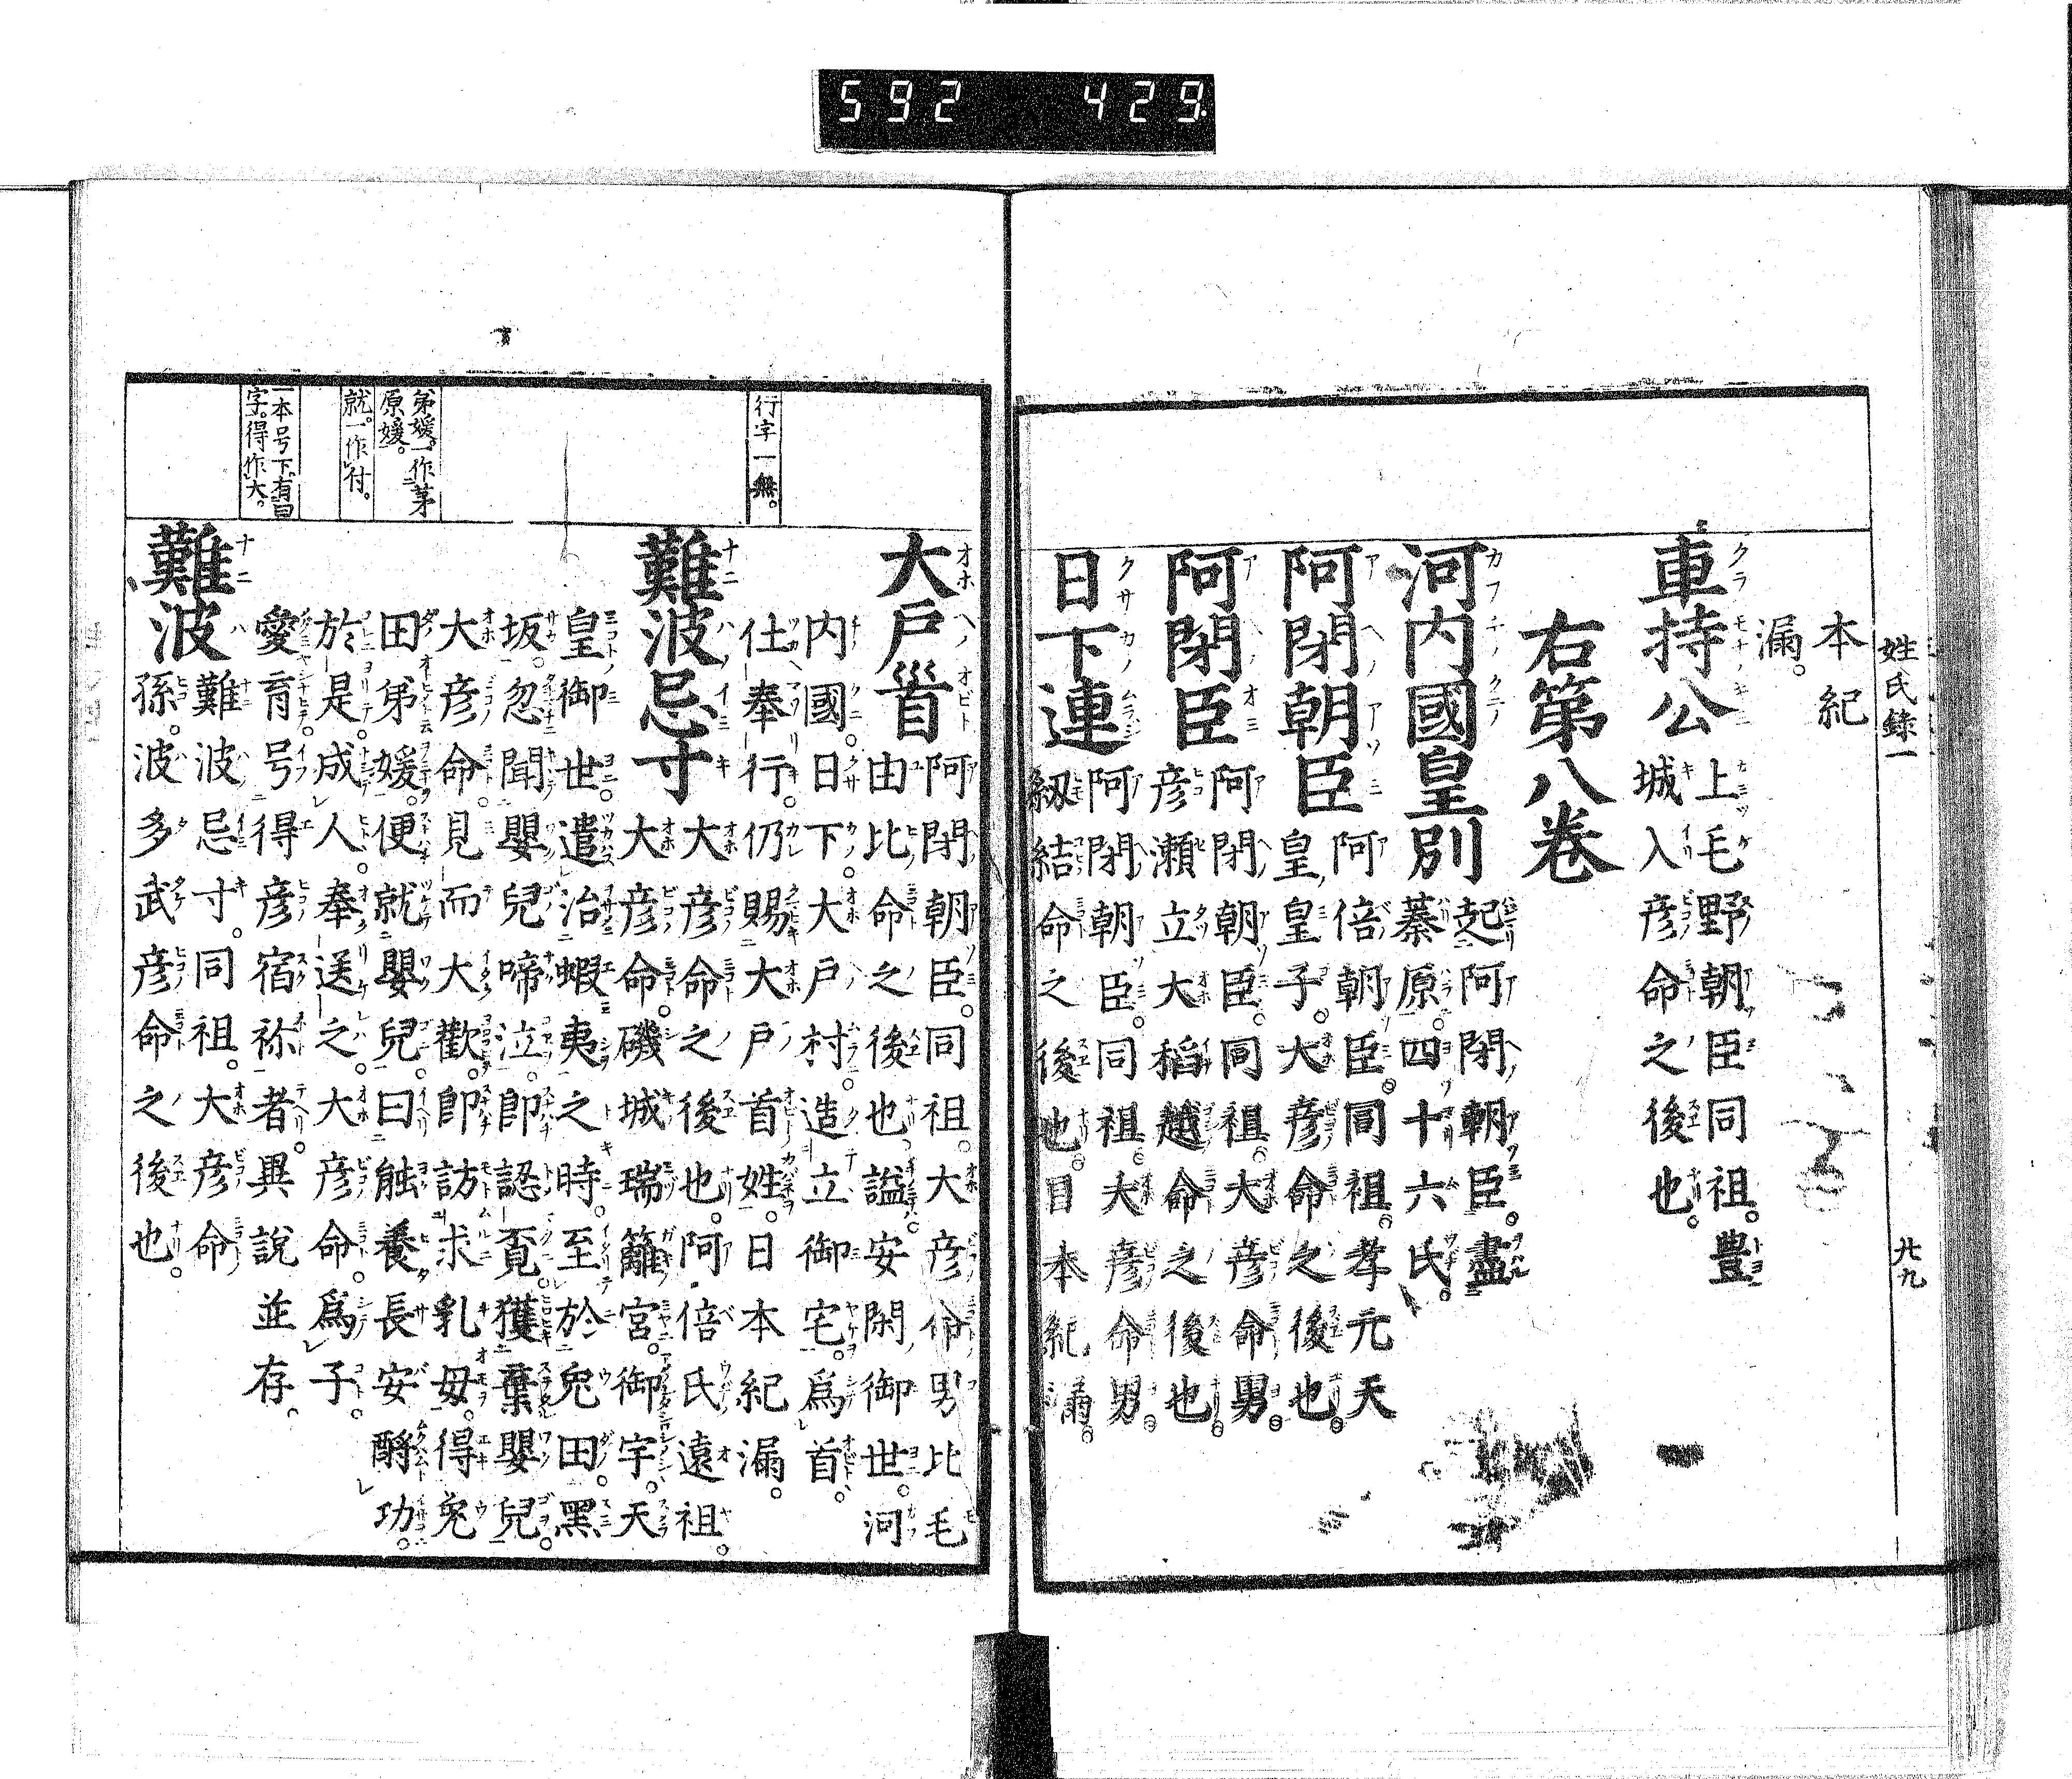 592 429
姓氏錄一
廿九
本紀
漏。
車持公
上毛野朝臣同祖。豊
城入彦命之後也。
右第八巻
河内國皇別
起阿閉朝臣。盡
蓁原。四十六氏。
阿閉朝臣
阿倍朝臣。同祖。孝元天
皇皇子。大彦命之後也。
阿閉臣
阿閉朝臣。同祖。大彦命男。
彦瀬立大稻越命之後也。
日下連
阿閉朝臣。同祖。大彦命男。
紉結命之後也。日本紀漏。
行字一無。
弟媛。一作茅
原媛。
就。一作付。
一本号下。有曰
字。得作大。
大戶首
阿閉朝臣。同祖。大彦命男比毛
由比命之後也。謚安閑御世。河
内國。日下。大戶村。造立御宅。爲首。
仕奉行。仍賜大戶首姓。日本紀漏。
難波忌寸
大彦命之後也。阿倍氏遠祖。
大彦命。磯城瑞籬宮。御宇。天
皇御世。遣治蝦夷之時。至於兔田。黑
坂。忽聞嬰兒啼泣。卽認覓。獲棄嬰兒。
大彦命。見而大歡。卽訪求乳母。得兔
田弟媛。便就嬰兒。曰能養長安酹功。
於是成人。奉送之。大彦命。爲子。
愛育号得彦宿祢者。異說並存。
難波
難波忌寸。同祖。大彦命
孫。波多武彦命之後也。